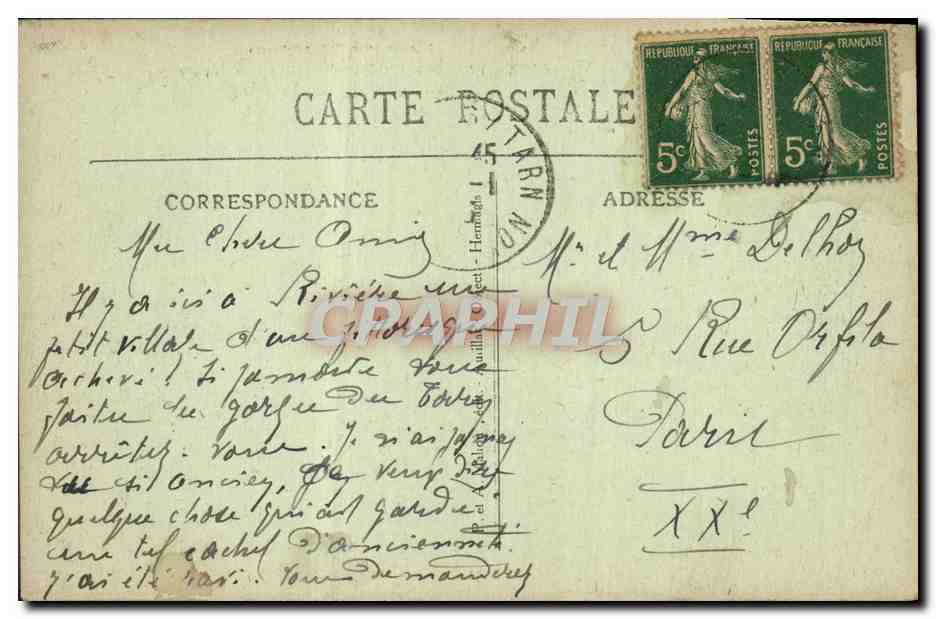 CARTE POSTALE
REPUBLIQUE FRANÇAISE
5c
POSTES
REPUBLIQUE FRANÇAISE
5c
POSTES
15
TARN
CORRESPONDANCE
Mes Chers Amis
Il y a ici à Rivière un
petit village d'un pittoresque
achevé! Si jamais vous
faites les gorges du Tarn
arrêtez-vous. Je n'ai jamais
vu si ancien, ça veut dire
quelque chose qui ait gardé
un tel cachet d'ancienneté.
j'ai été ravi. Vous demanderez
ADRESSE
Mr et Mme Delhoz
5 Rue Orfila
Paris
XXe
CPAPHIL